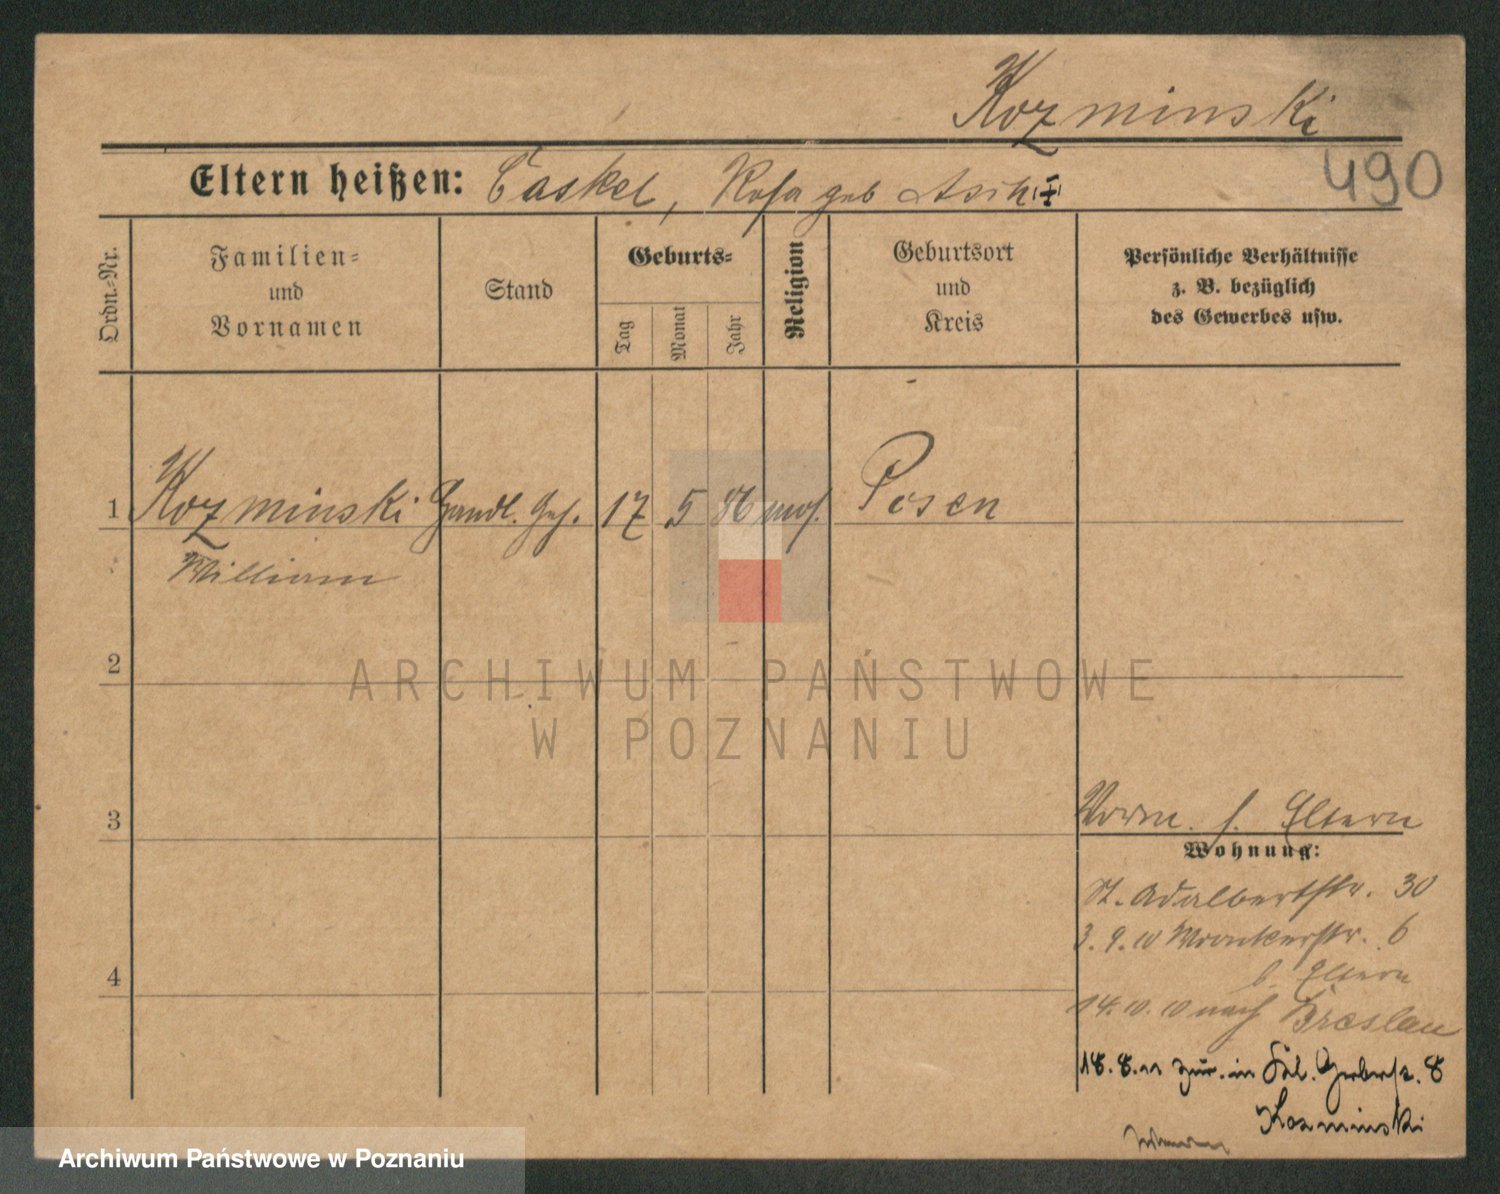 Kozminski
490
Eltern heißen: Caskel, Rosa geb Asch
Ordn.-Nr.
Familien-
und
Vornamen
Stand
Geburts-
Tag
Monat
Jahr
Religion
Geburtsort
und
Kreis
Persönliche Verhältnisse
z. B. bezüglich
des Gewerbes usw.
1 Kozminski Handl. Geh. 17 5 86 mos. Posen
William
2
3
Vorm. s. Eltern
Wohnung:
St. Adalbertstr. 30
3.9.10 Wronkerstr. 6
b. Eltern
4
14.10.10 nach Breslau
18.8.11 zur. in Gerberstr. 8
Kozminski
ARCHIWUM PAŃSTWOWE
W POZNANIU
Archiwum Państwowe w Poznaniu